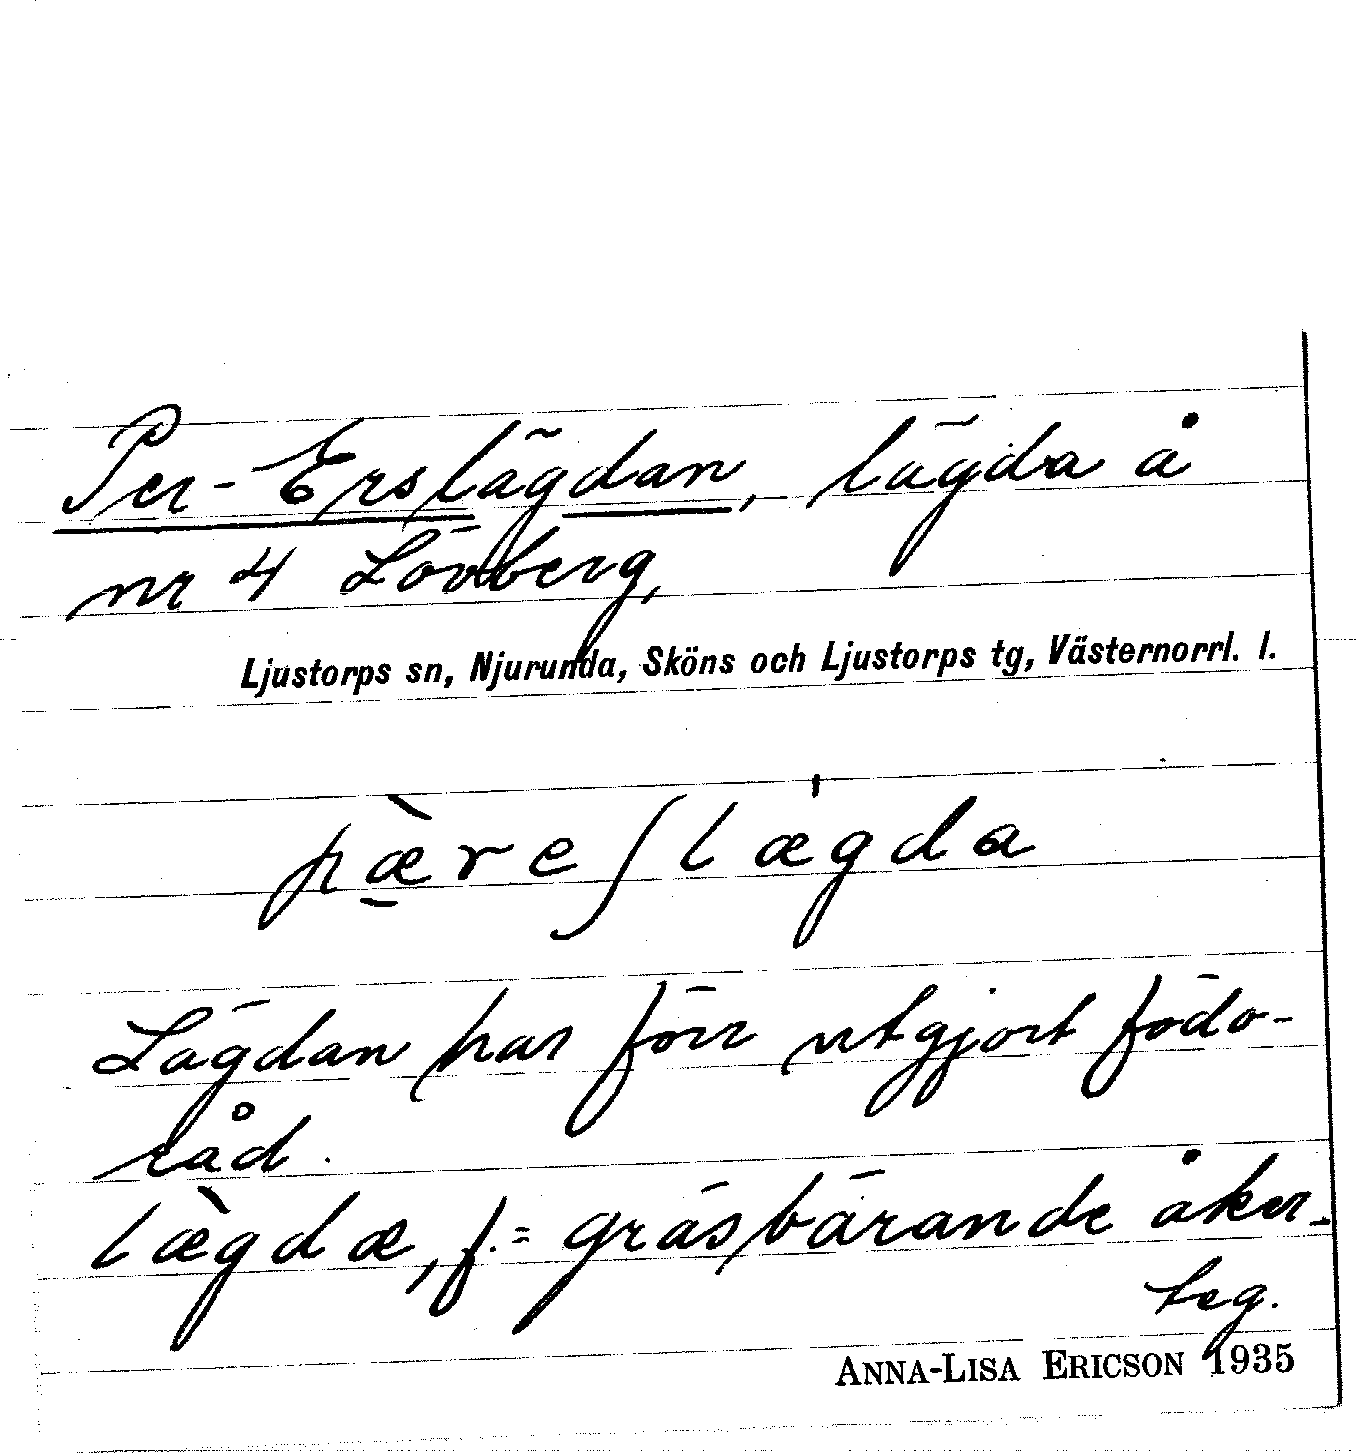 Per-Erslägdan, lägda å
nr 4 Lövberg,
Ljustorps sn, Njurunda, Sköns och Ljustorps tg, Västernorrl. l.
pæ̀reʃlægda
Lägdan har förr utgjort födo-
råd.
læ̀gdæ, f. = gräsbärande åker-
teg.
ANNA-LISA ERICSON 1935